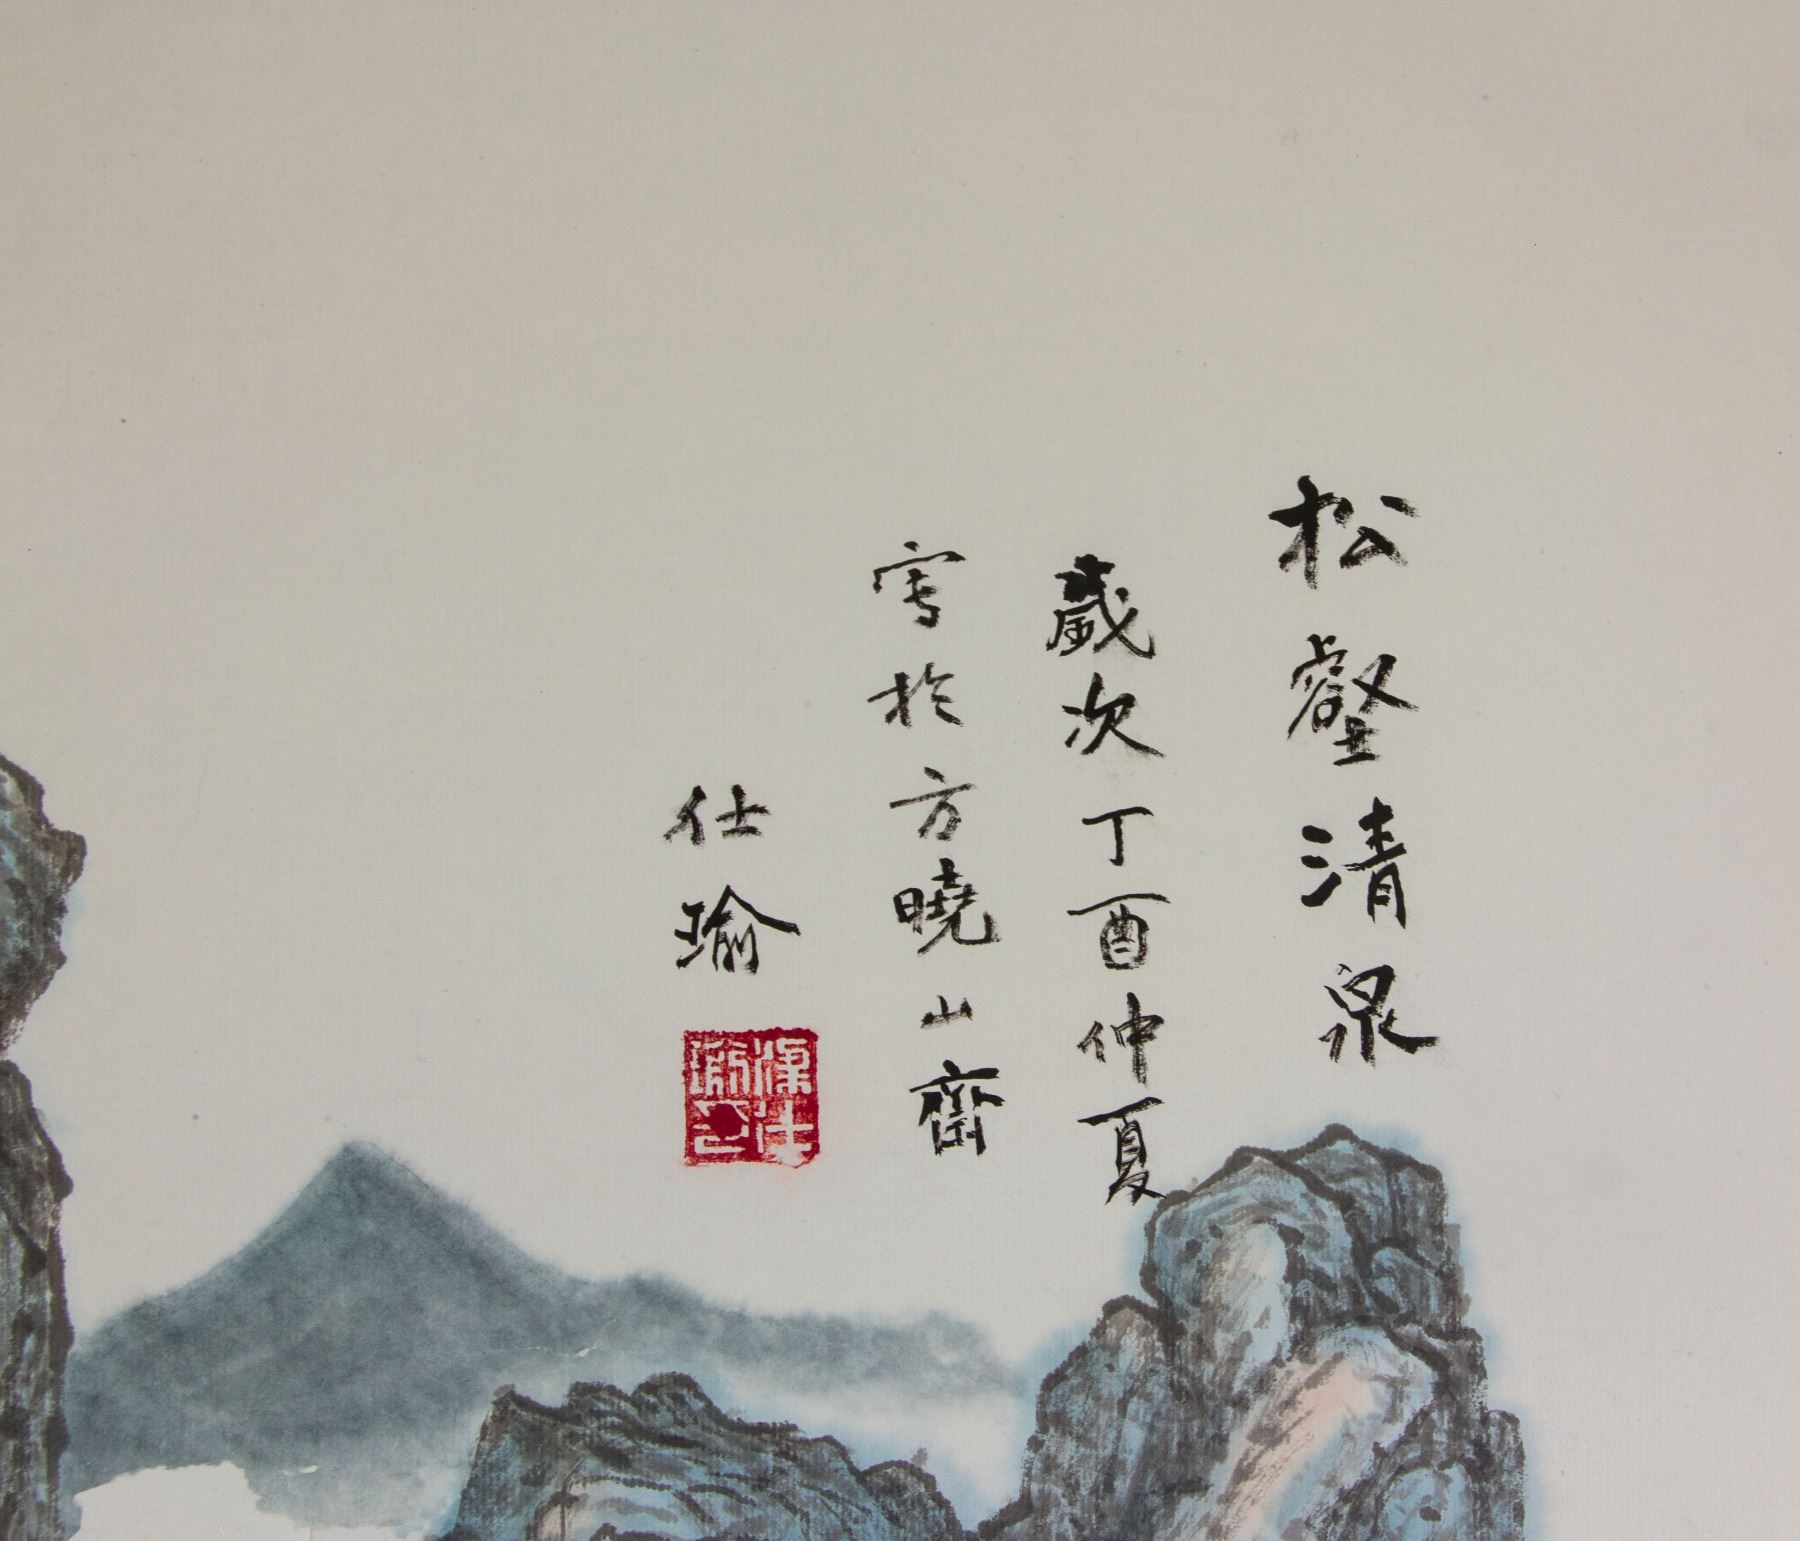 松壑清泉
歲次丁酉仲夏
寫於方曉山齋
仕瑜